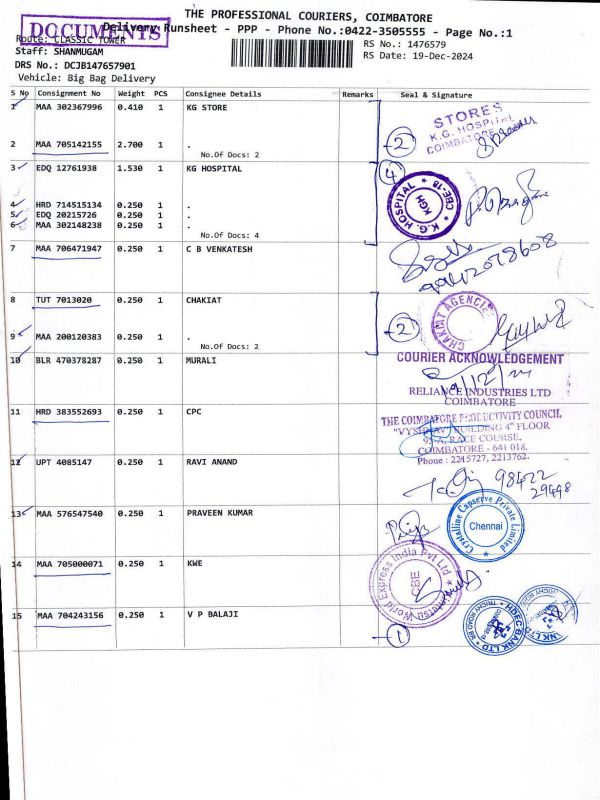 THE PROFESSIONAL COURIERS, COIMBATORE
DOCUMENTS
Delivery Runsheet - PPP - Phone No.:0422-3505555 - Page No.:1
Route: CLASSIC TOWER
RS No.: 1476579
Staff: SHANMUGAM
RS Date: 19-Dec-2024
DRS No.: DCJB147657901
Vehicle: Big Bag Delivery
S No Consignment No Weight PCS Consignee Details Remarks Seal & Signature
1 MAA 302367996 0.410 1 KG STORE
STORES
K.G. HOSPITAL
COIMBATORE
2
2 MAA 705142155 2.700 1 .
No.Of Docs: 2
3 EDQ 12761938 1.530 1 KG HOSPITAL
4
K.G. HOSPITAL CBE-18
KGH
4 HRD 714515134 0.250 1 .
5 EDQ 20215726 0.250 1 .
6 MAA 302148238 0.250 1 .
No.Of Docs: 4
7 MAA 706471947 0.250 1 C B VENKATESH
8 TUT 7013020 0.250 1 CHAKIAT
CHAKIAT AGENCIES
2
9 MAA 200120383 0.250 1 .
No.Of Docs: 2
10 BLR 470378287 0.250 1 MURALI
COURIER ACKNOWLEDGEMENT
19/12/24
RELIANCE INDUSTRIES LTD
COIMBATORE
11 HRD 383552693 0.250 1 CPC
THE COIMBATORE PRODUCTIVITY COUNCIL
"VYSHNAV" BUILDING 4th FLOOR
95-A, RACE COURSE,
COIMBATORE - 641 018.
Phone : 2215727, 2213762.
12 UPT 4085147 0.250 1 RAVI ANAND
98422
29498
13 MAA 576547540 0.250 1 PRAVEEN KUMAR
Crystalline Capserve Private Limited
Chennai
14 MAA 705000071 0.250 1 KWE
World Express India Pvt Ltd
CBE
15 MAA 704243156 0.250 1 V P BALAJI
1
HDFC BANK LTD